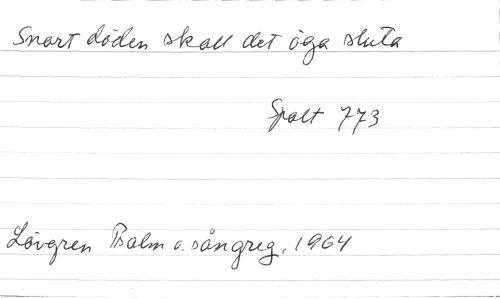 Snart döden skall det öga sluta
Spalt 773
Lövgren Psalm o. sångreg. 1964